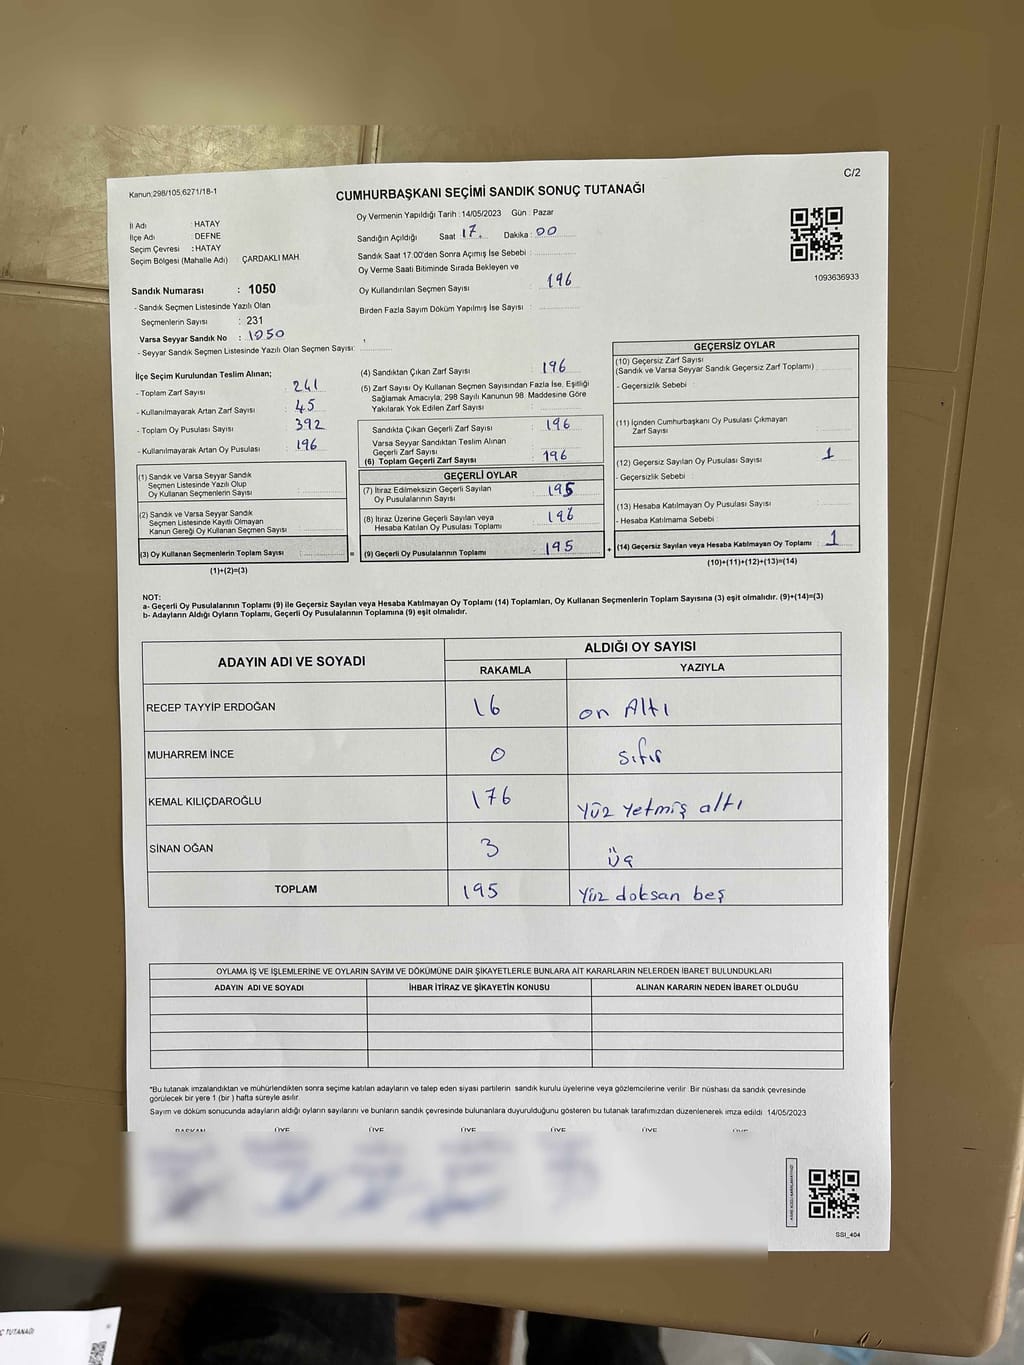 Kanun:298/105,6271/18-1
C/2
CUMHURBAŞKANI SEÇİMİ SANDIK SONUÇ TUTANAĞI
İl Adı : HATAY
İlçe Adı : DEFNE
Seçim Çevresi : HATAY
Seçim Bölgesi (Mahalle Adı) ÇARDAKLI MAH.
Sandık Numarası : 1050
- Sandık Seçmen Listesinde Yazılı Olan
Seçmenlerin Sayısı : 231
Varsa Seyyar Sandık No : 1050
- Seyyar Sandık Seçmen Listesinde Yazılı Olan Seçmen Sayısı:
Oy Vermenin Yapıldığı Tarih : 14/05/2023 Gün : Pazar
Sandığın Açıldığı Saat 17. Dakika : 00
Sandık Saat 17:00'den Sonra Açımış İse Sebebi :
Oy Verme Saati Bitiminde Sırada Bekleyen ve
Oy Kullandırılan Seçmen Sayısı : 196
Birden Fazla Sayım Döküm Yapılmış İse Sayısı :
1093636933
İlçe Seçim Kurulundan Teslim Alınan;
- Toplam Zarf Sayısı : 241
- Kullanılmayarak Artan Zarf Sayısı : 45
- Toplam Oy Pusulası Sayısı : 392
- Kullanılmayarak Artan Oy Pusulası : 196
(1) Sandık ve Varsa Seyyar Sandık
Seçmen Listesinde Yazılı Olup
Oy Kullanan Seçmenlerin Sayısı :
(2) Sandık ve Varsa Seyyar Sandık
Seçmen Listesinde Kayıtlı Olmayan
Kanun Gereği Oy Kullanan Seçmen Sayısı :
(3) Oy Kullanan Seçmenlerin Toplam Sayısı :
(1)+(2)=(3)
=
(4) Sandıktan Çıkan Zarf Sayısı : 196
(5) Zarf Sayısı Oy Kullanan Seçmen Sayısından Fazla İse, Eşitliği
Sağlamak Amacıyla, 298 Sayılı Kanunun 98. Maddesine Göre
Yakılarak Yok Edilen Zarf Sayısı :
Sandıkta Çıkan Geçerli Zarf Sayısı : 196
Varsa Seyyar Sandıktan Teslim Alınan
Geçerli Zarf Sayısı :
(6) Toplam Geçerli Zarf Sayısı : 196
GEÇERLİ OYLAR
(7) İtiraz Edilmeksizin Geçerli Sayılan
Oy Pusulalarının Sayısı : 195
(8) İtiraz Üzerine Geçerli Sayılan veya
Hesaba Katılan Oy Pusulası Toplamı : 196
(9) Geçerli Oy Pusulalarının Toplamı : 195
+
GEÇERSİZ OYLAR
(10) Geçersiz Zarf Sayısı
(Sandık ve Varsa Seyyar Sandık Geçersiz Zarf Toplamı) :
- Geçersizlik Sebebi :
(11) İçinden Cumhurbaşkanı Oy Pusulası Çıkmayan
Zarf Sayısı :
(12) Geçersiz Sayılan Oy Pusulası Sayısı : 1
- Geçersizlik Sebebi :
(13) Hesaba Katılmayan Oy Pusulası Sayısı :
- Hesaba Katılmama Sebebi :
(14) Geçersiz Sayılan veya Hesaba Katılmayan Oy Toplamı : 1
(10)+(11)+(12)+(13)=(14)
NOT:
a- Geçerli Oy Pusulalarının Toplamı (9) ile Geçersiz Sayılan veya Hesaba Katılmayan Oy Toplamı (14) Toplamları, Oy Kullanan Seçmenlerin Toplam Sayısına (3) eşit olmalıdır. (9)+(14)=(3)
b- Adayların Aldığı Oyların Toplamı, Geçerli Oy Pusulalarının Toplamına (9) eşit olmalıdır.
ADAYIN ADI VE SOYADI ALDIĞI OY SAYISI
RAKAMLA YAZIYLA
RECEP TAYYİP ERDOĞAN 16 on Altı
MUHARREM İNCE 0 sıfır
KEMAL KILIÇDAROĞLU 176 Yüz Yetmiş altı
SİNAN OĞAN 3 Üç
TOPLAM 195 Yüz doksan beş
OYLAMA İŞ VE İŞLEMLERİNE VE OYLARIN SAYIM VE DÖKÜMÜNE DAİR ŞİKAYETLERLE BUNLARA AİT KARARLARIN NELERDEN İBARET BULUNDUKLARI
ADAYIN ADI VE SOYADI İHBAR İTİRAZ VE ŞİKAYETİN KONUSU ALINAN KARARIN NEDEN İBARET OLDUĞU
*Bu tutanak imzalandıktan ve mühürlendikten sonra seçime katılan adayların ve talep eden siyasi partilerin sandık kurulu üyelerine veya gözlemcilerine verilir. Bir nüshası da sandık çevresinde
görülecek bir yere 1 (bir) hafta süreyle asılır.
Sayım ve döküm sonucunda adayların aldığı oyların sayılarını ve bunların sandık çevresinde bulunanlara duyurulduğunu gösteren bu tutanak tarafımızdan düzenlenerek imza edildi. 14/05/2023
BAŞKAN ÜYE ÜYE ÜYE ÜYE ÜYE ÜYE
SSI_404
TUTANAĞI